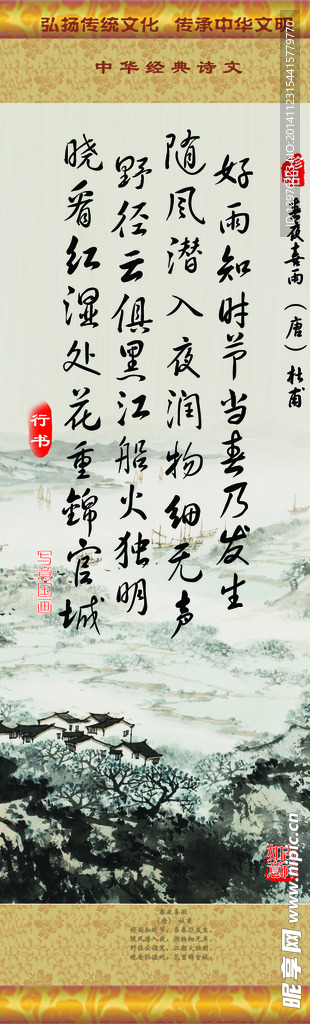 弘扬传统文化 传承中华文明
中华经典诗文
春夜喜雨（唐）杜甫
好雨知时节当春乃发生
随风潜入夜润物细无声
野径云俱黑江船火独明
晓看红湿处花重錦官城
行书
写意国画
如意
春夜喜雨
（唐） 杜甫
好雨知时节，当春乃发生。
随风潜入夜，润物细无声。
野径云俱黑，江船火独明。
晓看红湿处，花重锦官城。
昵享网 www.nipic.cn